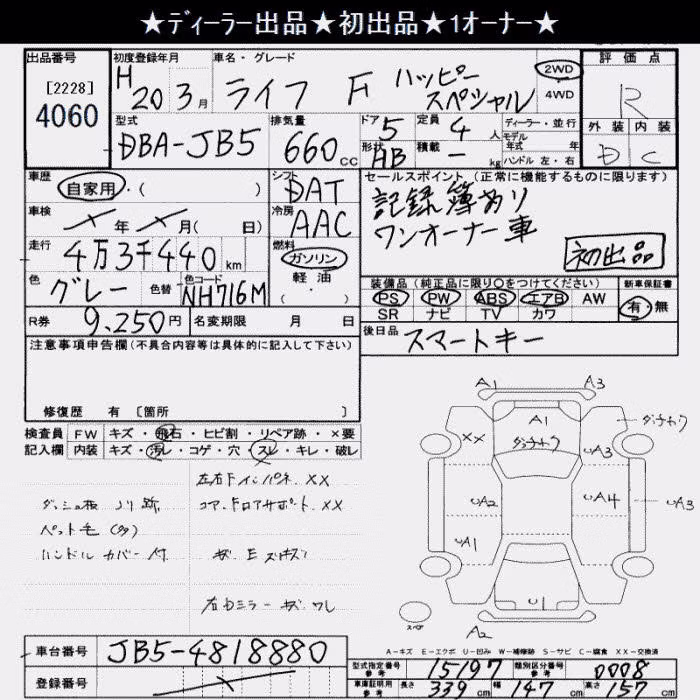 ★ディーラー出品★初出品★1オーナー★
出品番号
[2228]
4060
初度登録年月
H 20年 3月
車名・グレード
ライフ F ハッピースペシャル
2WD
4WD
評価点
R
外装 内装
D C
型式
DBA-JB5
排気量
660cc
ドア
5
形状
HB
定員
4人
積載
－ kg
ディーラー・並行
モデル
年式 年
ハンドル 左・右
車歴
自家用・( )
シフト
DAT
車検
× 年 × 月( 日)
冷房
AAC
走行
4万3千440km
燃料
ガソリン
軽油
・( )
色
グレー
色替
色コード
NH716M
R券
9,250円
名変期限 月 日
セールスポイント (正常に機能するものに限ります)
記録簿あり
ワンオーナー車
初出品
装備品 (純正品に限り○をつけてください)
PS PW ABS エアB AW
SR ナビ TV カワ
新車保証書
有・無
後日品
スマートキー
注意事項申告欄(不具合内容等は具体的に記入して下さい)
修復歴 有 [箇所 ]
検査員 FW キズ・飛石・ヒビ割・リペア跡・×要
記入欄 内装 キズ・汚レ・コゲ・穴・スレ・キレ・破レ
左右Fインパネ XX
コア, Fロアサポート XX
ペット毛 (多)
ハンドルカバー付
右Dミラー キズ ワレ
A1 A3
A1
XX
UA3
UA2
UA4
UA3
UA1
U1
A2
スペア
A-キズ E-エクボ U-凹み W-補修跡 S-サビ C-腐食 XX-交換済
車台番号
JB5-4818880
登録番号
型式指定番号
参考
15197
類別区分番号
参考
0008
車庫証明用
参考
長さ 339cm 幅 147cm 高さ 157cm